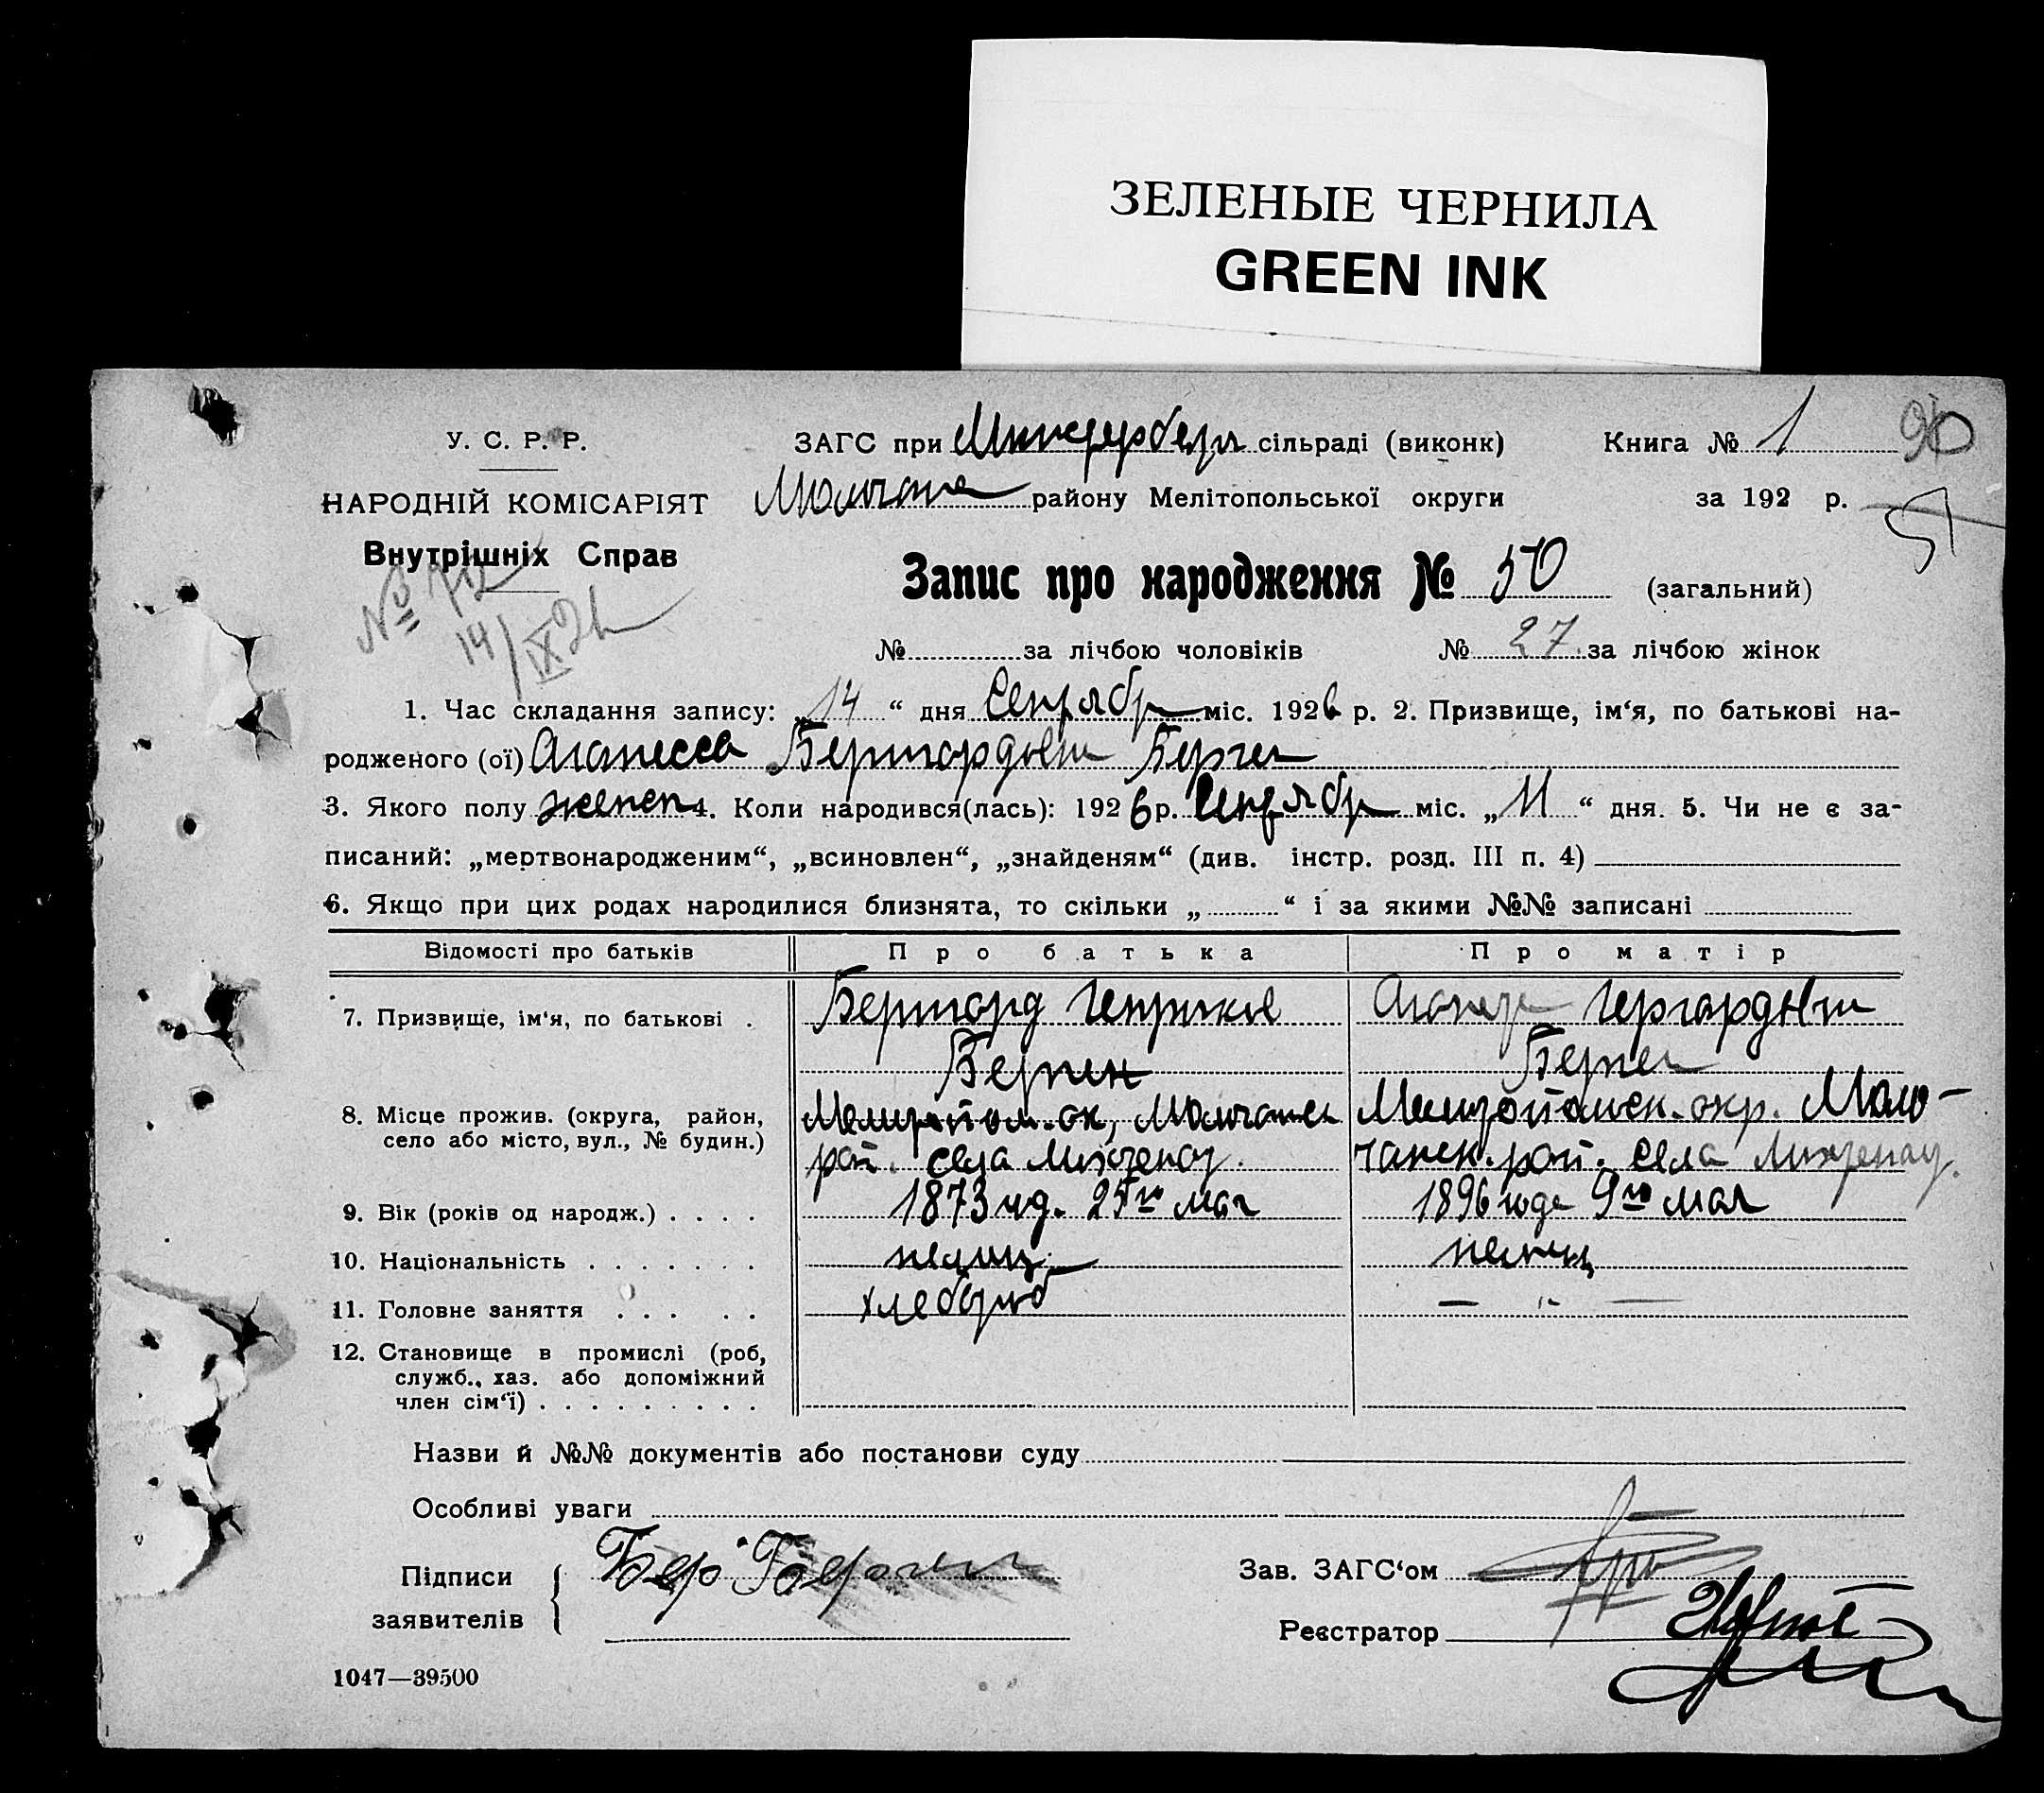 ЗЕЛЕНЫЕ ЧЕРНИЛА
GREEN INK
У. С. Р. Р.
ЗАГС при сільраді (виконк) Книга № 1 90
НАРОДНІЙ КОМІСАРІЯТ
району Мелітопольської округи за 192 р.
Внутрішніх Справ
Запис про народження № 50 (загальний)
№ 72
14/IX 26
№ за лічбою чоловіків № 27 за лічбою жінок
1. Час складання запису: „14“ дня Сентябр міс. 1926 р. 2. Призвище, ім‘я, по батькові на-
родженого (ої) Аганесса Бернгардовн Берген
3. Якого полу женск 4. Коли народився(лась): 1926 р. Сентябр міс. „11“ дня. 5. Чи не є за-
писаний: „мертвонародженим“, „всиновлен“, „знайденям“ (див. інстр. розд. III п. 4)
6. Якщо при цих родах народилися близнята, то скільки „ “ і за якими №№ записані
Відомості про батьків Про батька Про матір
7. Призвище, ім‘я, по батькові . Бернгард Генрихов Гергардовн
Берген Берген
8. Місце прожив. (округа, район, село або місто, вул., № будин.) Мелитопол. ок, Молочанск Мелитопольск. окр. Моло-
рай. села Лихтенау. чанск. рай. села Лихтенау.
9. Вік (років од народж.) . . . . 1873 год. 25го мая 1896 года 9го мая
10. Національність . . . . . . . немец немец
11. Головне заняття . . . . . хлебороб — " —
12. Становище в промислі (роб,
служб., хаз. або допоміжний
член сім‘ї) . . . . . . . . .
Назви й №№ документів або постанови суду
Особливі уваги
Підписи Бер Берген Зав. ЗАГС‘ом
заявителів Реєстратор
1047—39500